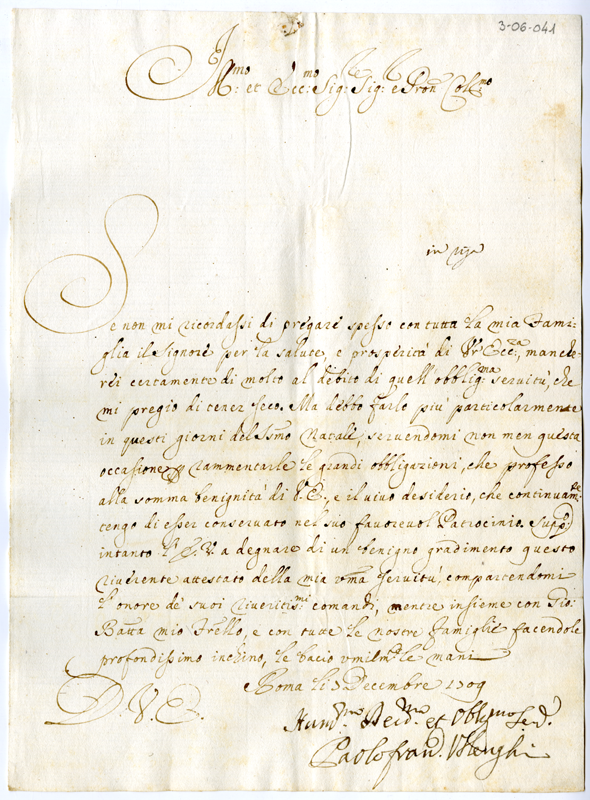 3-06-041
Ill:mo et Ecc:mo Sig:re Sig:re e Pron Col:mo
Se non mi ricordassi di pregare spesso con tutta la mia Fami-
glia il Signore per la salute, e prosperità di Vr̃ Ecc:za, manche-
rei certamente di molto al debito di quell'obblig:ma servitù, che
mi pregio di tener seco. Ma debbo farlo più particolarmente
in questi giorni del SSmo Natale, servendomi non men questa
occasione p rammentarle le grandi obbligazioni, che professo
alla somma benignità di V. E., e il vivo desiderio, che continuam:te
tengo di esser conservato nel suo favorevol Patrocinio. Supp:co
intanto l'E. V. a degnare di un benigno gradimento questo
riverente attestato della mia vma servitù, compartendomi
l'onore de' suoi riveritis:mi comandi, mentre insieme con Gio:
Batta mio Frello, e con tutte le nostre famiglie facendole
profondissimo inchino, le bacio vmilm:te le mani
Roma li Decembre 1709
D. V. E.
Hum:mo De:mo et Obl:mo Se:
Paolofran: